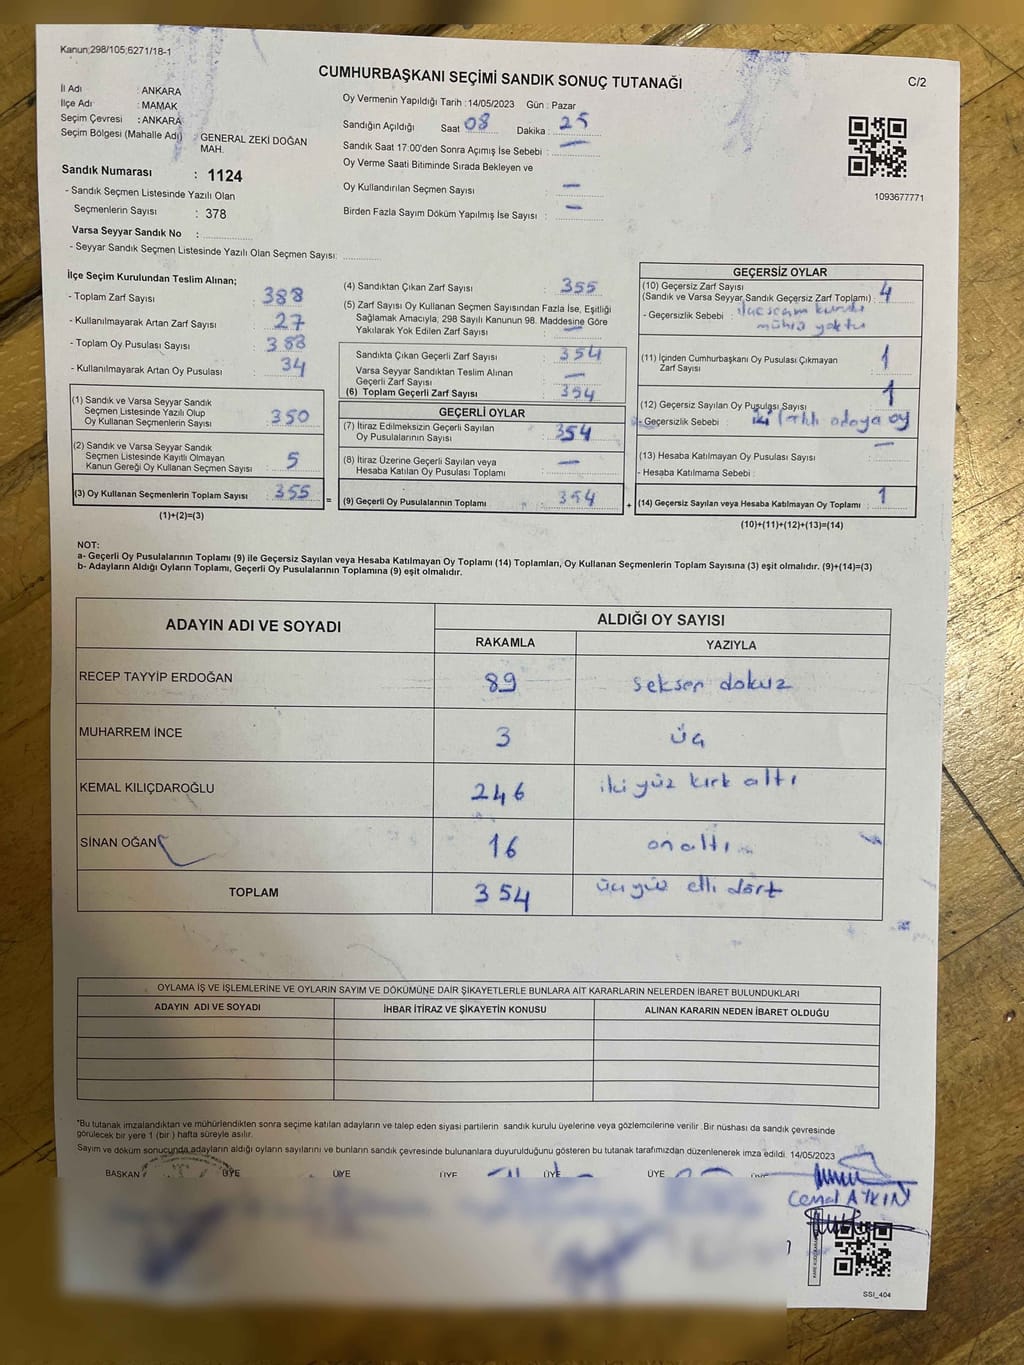 Kanun;298/105;6271/18-1
C/2
CUMHURBAŞKANI SEÇİMİ SANDIK SONUÇ TUTANAĞI
İl Adı : ANKARA
İlçe Adı : MAMAK
Seçim Çevresi : ANKARA
Seçim Bölgesi (Mahalle Adı) : GENERAL ZEKİ DOĞAN MAH.
Sandık Numarası : 1124
- Sandık Seçmen Listesinde Yazılı Olan
Seçmenlerin Sayısı : 378
Varsa Seyyar Sandık No :
- Seyyar Sandık Seçmen Listesinde Yazılı Olan Seçmen Sayısı:
Oy Vermenin Yapıldığı Tarih : 14/05/2023 Gün : Pazar
Sandığın Açıldığı Saat 08 Dakika : 25
Sandık Saat 17:00'den Sonra Açımış İse Sebebi : —
Oy Verme Saati Bitiminde Sırada Bekleyen ve
Oy Kullandırılan Seçmen Sayısı : —
Birden Fazla Sayım Döküm Yapılmış İse Sayısı : —
1093677771
İlçe Seçim Kurulundan Teslim Alınan;
- Toplam Zarf Sayısı : 388
- Kullanılmayarak Artan Zarf Sayısı : 27
- Toplam Oy Pusulası Sayısı : 388
- Kullanılmayarak Artan Oy Pusulası : 34
(1) Sandık ve Varsa Seyyar Sandık
Seçmen Listesinde Yazılı Olup
Oy Kullanan Seçmenlerin Sayısı : 350
(2) Sandık ve Varsa Seyyar Sandık
Seçmen Listesinde Kayıtlı Olmayan
Kanun Gereği Oy Kullanan Seçmen Sayısı : 5
(3) Oy Kullanan Seçmenlerin Toplam Sayısı : 355
(1)+(2)=(3)
=
(4) Sandıktan Çıkan Zarf Sayısı : 355
(5) Zarf Sayısı Oy Kullanan Seçmen Sayısından Fazla İse, Eşitliği
Sağlamak Amacıyla, 298 Sayılı Kanunun 98. Maddesine Göre
Yakılarak Yok Edilen Zarf Sayısı : —
Sandıkta Çıkan Geçerli Zarf Sayısı : 354
Varsa Seyyar Sandıktan Teslim Alınan
Geçerli Zarf Sayısı : —
(6) Toplam Geçerli Zarf Sayısı : 354
GEÇERLİ OYLAR
(7) İtiraz Edilmeksizin Geçerli Sayılan
Oy Pusulalarının Sayısı : 354
(8) İtiraz Üzerine Geçerli Sayılan veya
Hesaba Katılan Oy Pusulası Toplamı : —
(9) Geçerli Oy Pusulalarının Toplamı : 354
+
GEÇERSİZ OYLAR
(10) Geçersiz Zarf Sayısı
(Sandık ve Varsa Seyyar Sandık Geçersiz Zarf Toplamı) : 4
- Geçersizlik Sebebi :
mührü yoktu
(11) İçinden Cumhurbaşkanı Oy Pusulası Çıkmayan
Zarf Sayısı : 1
(12) Geçersiz Sayılan Oy Pusulası Sayısı : 1
- Geçersizlik Sebebi : iki oy
(13) Hesaba Katılmayan Oy Pusulası Sayısı : —
- Hesaba Katılmama Sebebi :
(14) Geçersiz Sayılan veya Hesaba Katılmayan Oy Toplamı : 1
(10)+(11)+(12)+(13)=(14)
NOT:
a- Geçerli Oy Pusulalarının Toplamı (9) ile Geçersiz Sayılan veya Hesaba Katılmayan Oy Toplamı (14) Toplamları, Oy Kullanan Seçmenlerin Toplam Sayısına (3) eşit olmalıdır. (9)+(14)=(3)
b- Adayların Aldığı Oyların Toplamı, Geçerli Oy Pusulalarının Toplamına (9) eşit olmalıdır.
ADAYIN ADI VE SOYADI
ALDIĞI OY SAYISI
RAKAMLA YAZIYLA
RECEP TAYYİP ERDOĞAN 89 seksen dokuz
MUHARREM İNCE 3 üç
KEMAL KILIÇDAROĞLU 246 iki yüz kırk altı
SİNAN OĞAN 16 on altı
TOPLAM 354 üç yüz elli dört
OYLAMA İŞ VE İŞLEMLERİNE VE OYLARIN SAYIM VE DÖKÜMÜNE DAİR ŞİKAYETLERLE BUNLARA AİT KARARLARIN NELERDEN İBARET BULUNDUKLARI
ADAYIN ADI VE SOYADI İHBAR İTİRAZ VE ŞİKAYETİN KONUSU ALINAN KARARIN NEDEN İBARET OLDUĞU
*Bu tutanak imzalandıktan ve mühürlendikten sonra seçime katılan adayların ve talep eden siyasi partilerin sandık kurulu üyelerine veya gözlemcilerine verilir. Bir nüshası da sandık çevresinde
görülecek bir yere 1 (bir ) hafta süreyle asılır.
Sayım ve döküm sonucunda adayların aldığı oyların sayılarını ve bunların sandık çevresinde bulunanlara duyurulduğunu gösteren bu tutanak tarafımızdan düzenlenerek imza edildi. 14/05/2023
BAŞKAN ÜYE ÜYE ÜYE ÜYE ÜYE ÜYE
Cemal ATKIN
SSI_404